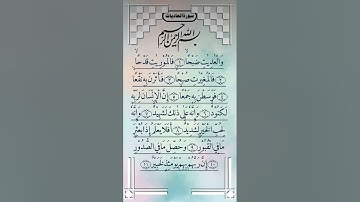 سورة العاديات
بسم الله الرحمن الرحيم
وَالْعٰدِيٰتِ ضَبْحًا ﴿١﴾ فَالْمُوْرِيٰتِ قَدْحًا
﴿٢﴾ فَالْمُغِيْرٰتِ صُبْحًا ﴿٣﴾ فَاَثَرْنَ بِهٖ نَقْعًا
﴿٤﴾ فَوَسَطْنَ بِهٖ جَمْعًا ﴿٥﴾ اِنَّ الْاِنْسَانَ لِرَبِّهٖ
لَكَنُوْدٌ ﴿٦﴾ وَاِنَّهٗ عَلٰى ذٰلِكَ لَشَهِيْدٌ ﴿٧﴾ وَاِنَّهٗ
لِحُبِّ الْخَيْرِ لَشَدِيْدٌ ﴿٨﴾ اَفَلَا يَعْلَمُ اِذَا بُعْثِرَ
مَا فِى الْقُبُوْرِ ﴿٩﴾ وَحُصِّلَ مَا فِى الصُّدُوْرِ
﴿١٠﴾ اِنَّ رَبَّهُمْ بِهِمْ يَوْمَئِذٍ لَّخَبِيْرٌ ﴿١١﴾